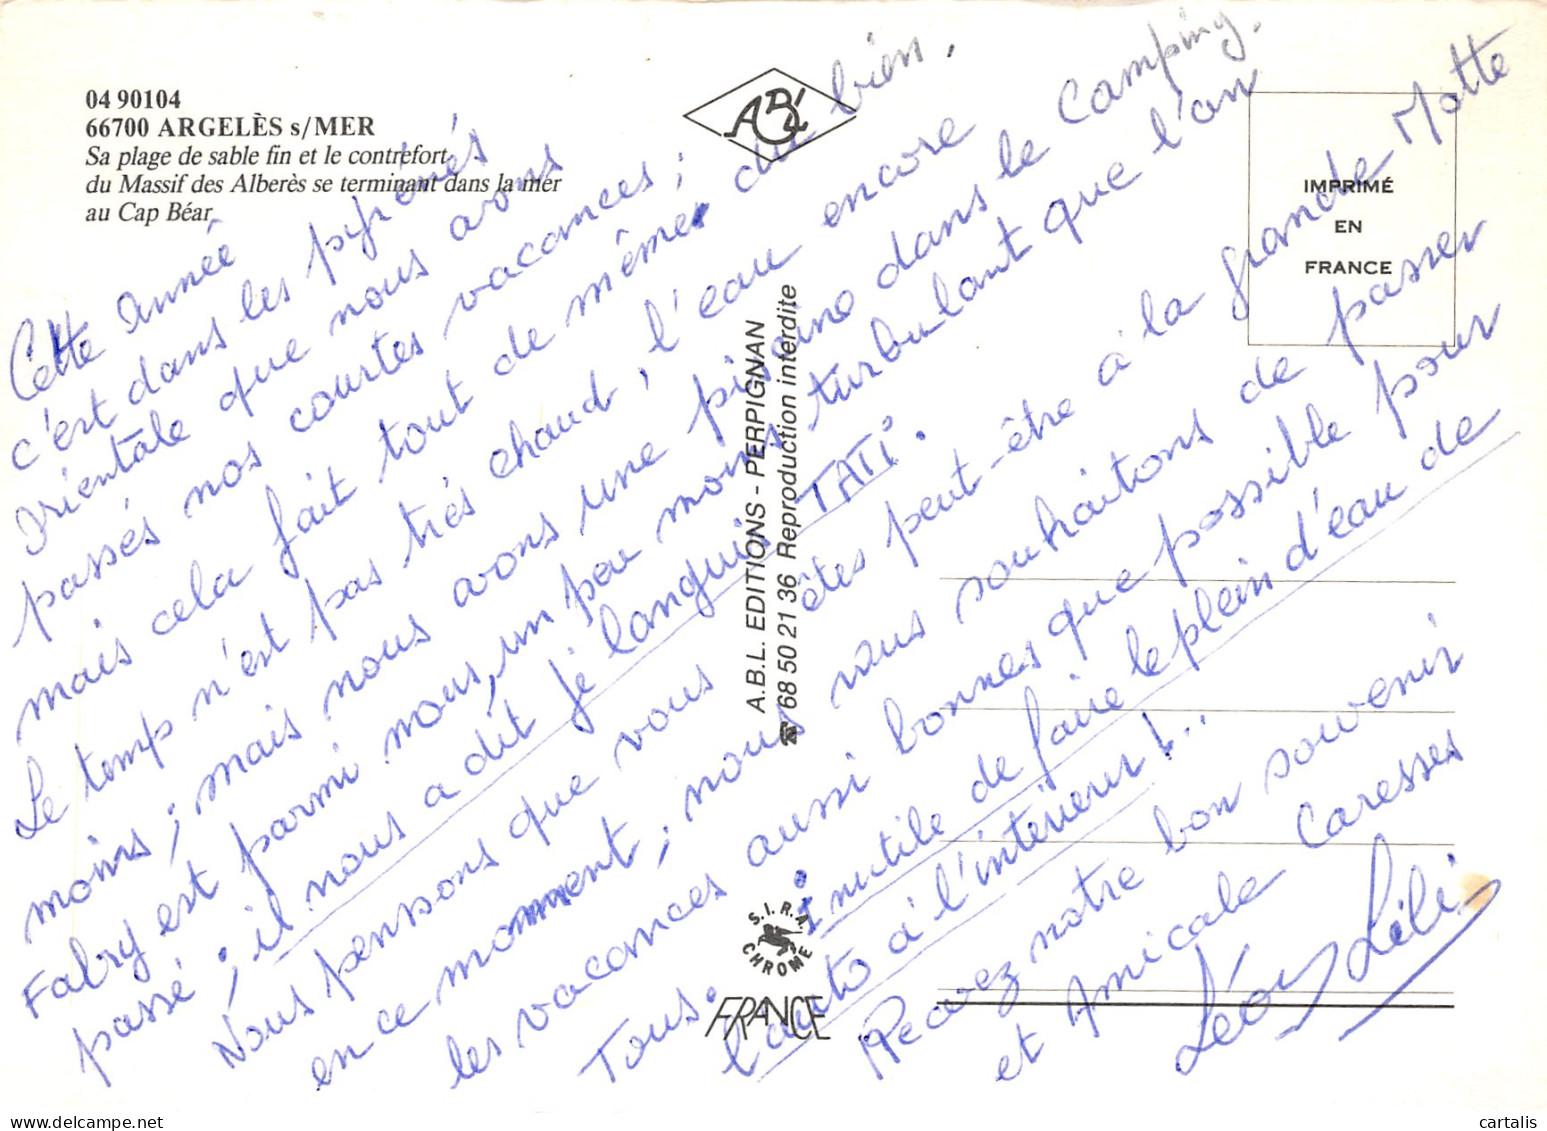 04 90104
66700 ARGELÈS s/MER
Sa plage de sable fin et le contrefort
du Massif des Alberès se terminant dans la mer
au Cap Béar
ABL
IMPRIMÉ
EN
FRANCE
A.B.L. EDITIONS - PERPIGNAN
☎ 68 50 21 36 Reproduction interdite
S.I.R.A.
CHROME
FRANCE
Cette année
c'est dans les pyrénés
orientale que nous avons
passés nos courtes vacances ;
mais cela fait tout de mêmes du bien.
Le temp n'est pas très chaud, l'eau encore
moins ; mais nous avons une piscine dans le Camping.
Fabry est parmi nous, un peu moins turbulant que l'an
passé ; il nous a dit je languis TATI.
Nous penssons que vous êtes peut-être à la grande Motte
en ce momment ; nous vous souhaitons de passer
les vacances aussi bonnes que possible pour
Tous. Inutile de faire le plein d'eau de
l'auto à l'intérieur !...
Recevez notre bon souvenir
et Amicale Caresses
Léon Lili
cartalis